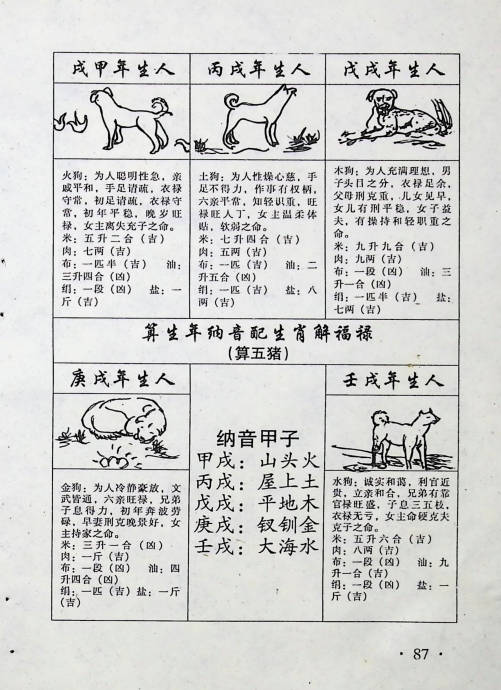 戌甲年生人
火狗：为人聪明性急，亲
戚平和，手足请疏，衣禄
守常，初足请疏，衣禄
守常，初年平稳，晚岁旺
禄，女主离失充子之命。
米：五升二合（吉）
肉：七两（吉）
布：一匹半（吉） 油：
三升四合（凶）
绢：一段（吉） 盐：一
斤（吉）
丙戌年生人
土狗：为人性燥心慈，手
足不得力，作事有权柄，
六亲平常，知轻识重，旺
禄旺人丁，女主温柔体
贴，软弱之命。
米：七升四合（吉）
肉：五两（吉）
布：一匹（吉） 油：二
升五合（凶）
绢：一段（吉） 盐：八
两（吉）
戊戌年生人
木狗：为人充满理想，男
子头目之分，衣禄足余，
父母刑克重，儿女见早，
女儿有刑平稳，女子益
夫，有操持和轻职重之
命。
米：九升九合（吉）
肉：九两（吉）
布：一段（凶） 油：三
升一合（凶）
绢：一匹（吉） 盐：
七两（吉）
算生年纳音配生肖解福禄
（算五猪）
庚戌年生人
金狗：为人冷静豪放，文
武皆通，六亲旺禄，兄弟
子息得力，初年奔波劳
碌，早妻刑克晚景好，女
主持家之命。
米：三升一合（凶）
肉：一斤（吉）
布：一段（凶） 油：四
升四合（凶）
绢：一匹（吉）盐：一斤
（吉）
纳音甲子
甲戌：山头火
丙戌：屋上土
戊戌：平地木
庚戌：钗钏金
壬戌：大海水
壬戌年生人
水狗：诚实和蔼，利官近
贵，立亲和合，兄弟有靠
官禄旺盛，子息三五枝，
衣禄无亏，女主命硬克夫
克子之命。
米：五升六合（吉）
肉：八两（吉）
布：一段（凶） 油：九
升一合（吉）
绢：一段（凶） 盐：一
斤（吉）
· 87 ·